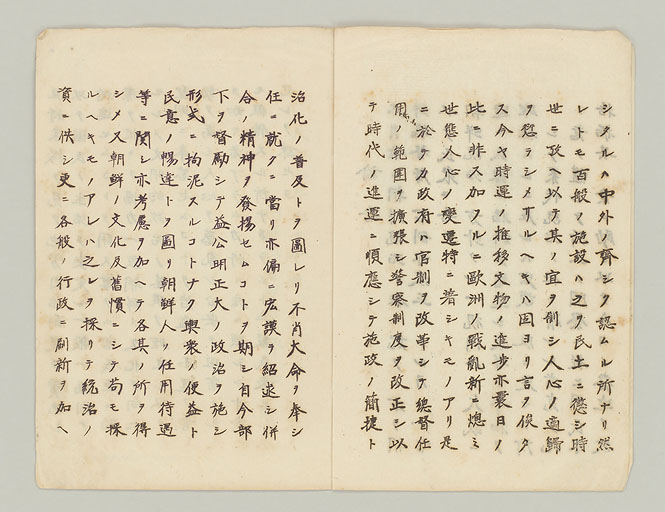 シタルハ中外ノ齊シク認ムル所ナリ然
レトモ百般ノ施設ハ之ヲ民土ニ徴シ時
世ニ政ヘ以テ其ノ宜ヲ制シ人心ノ適歸
ヲ愆ラシメサルヘキハ固ヨリ言ヲ俟タ
ス今ヤ時運ノ推移文物ノ進歩亦曩日ノ
比ニ非ス加フルニ歐洲ノ戰亂新ニ熄ミ
世態人心ノ變遷特ニ著シキモノアリ是
ニ於テカ政府ハ官制ヲ改革シテ總督任
用ノ範圍ヲ擴張シ警察制度ヲ改正シ以
テ時代ノ進運ニ順應シテ施政ノ簡捷ト
治化ノ普及トヲ圖レリ不肖大命ヲ奉シ
任ニ就クニ當リ亦偏ニ宏謨ヲ紹述シ併
合ノ精神ヲ發揚セムコトヲ期シ自今部
下ヲ督勵シテ益公明正大ノ政治ヲ施シ
形式ニ拘泥スルコトナク輿衆ノ便益ト
民意ノ暢達トヲ圖リ朝鮮人ノ任用待遇
等ニ関シ亦考慮ヲ加ヘテ各其ノ所ヲ得
シメ又朝鮮ノ文化及舊慣ニシテ苟モ採
ルヘキモノアレハ之レヲ採リテ統治ノ
資ニ供シ更ニ各般ノ行政ニ刷新ヲ加ヘ